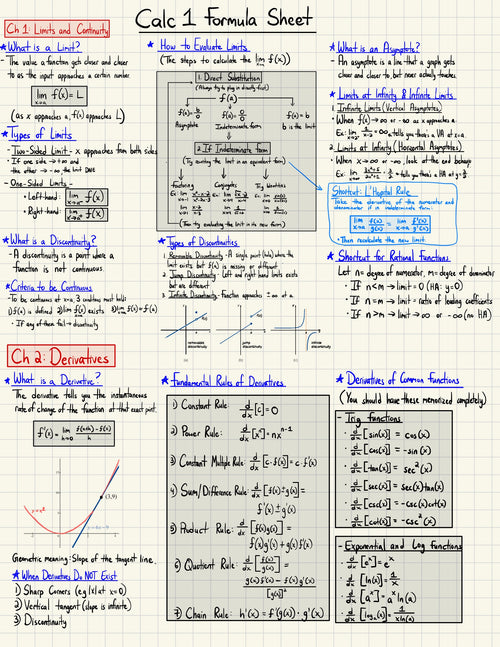 Calc 1 Formula Sheet
Ch 1: Limits and Continuity
* What is a Limit?
- The value a function gets closer and closer
to as the input approaches a certain number.
lim x→a f(x) = L
(as x approaches a, f(x) approaches L)
* Types of Limits
- Two-Sided Limit - x approaches from both sides
• If one side → +∞ and
the other → -∞ the limit DNE
- One-Sided Limits -
• Left-hand: lim x→a⁻ f(x)
• Right-hand: lim x→a⁺ f(x)
* What is a Discontinuity?
- A discontinuity is a point where a
function is not continuous.
* Criteria to be Continuous
- To be continuous at x=a, 3 conditions must hold:
1) f(a) is defined 2) lim x→a f(x) exists 3) lim x→a f(x) = f(a)
• If any of them fail → discontinuity
* How to Evaluate Limits
(The steps to calculate the lim x→a f(x))
1. Direct Substitution
(Always try to plug in directly first)
f(a)
f(a) = b/0
Asymptote
f(a) = 0/0
Indeterminate form
f(a) = b
b is the limit
2. If Indeterminate form
(Try writing the limit in an equivalent form)
Factoring
Conjugates
Trig Identities
(Then try evaluating the limit in its new form)
* Types of Discontinuities
1. Removable Discontinuity - A single point (hole) where the
limit exists but f(x) is missing or different
2. Jump Discontinuity - Left and right hand limits exist
but are different
3. Infinite Discontinuity - Function approaches ±∞ at a
removable
discontinuity
jump
discontinuity
infinite
discontinuity
* What is an Asymptote?
- An asymptote is a line that a graph gets
closer and closer to, but never actually touches.
* Limits at Infinity & Infinite Limits
1. Infinite Limits (Vertical Asymptotes)
• When f(x) → ∞ or -∞ as x approaches a.
2. Limits at Infinity (Horizontal Asymptotes)
• When x → ∞ or -∞, look at the end behavior
Shortcut: L'Hopital Rule
Take the derivative of the numerator and
denominator if in indeterminate form:
lim x→a f(x)/g(x) = lim x→a f'(x)/g'(x)
• Then recalculate the new limit.
* Shortcut for Rational Functions
Let n = degree of numerator, m = degree of denominator
• If n < m → limit = 0 (HA: y=0)
• If n = m → limit = ratio of leading coefficients
• If n > m → limit → ∞ or -∞ (no HA)
Ch 2: Derivatives
* What is a Derivative?
The derivative tells you the instantaneous
rate of change of the function at that exact point.
f'(x) = lim h→0 f(x+h) - f(x) / h
(3,9)
Geometric meaning: Slope of the tangent line.
* When Derivatives Do NOT Exist
1) Sharp Corners (e.g |x| at x=0)
2) Vertical tangent (slope is infinite)
3) Discontinuity
* Fundamental Rules of Derivatives
1) Constant Rule: d/dx [c] = 0
2) Power Rule: d/dx [xⁿ] = nxⁿ⁻¹
3) Constant Multiple Rule: d/dx [c·f(x)] = c·f'(x)
4) Sum/Difference Rule: d/dx [f(x) ± g(x)] =
f'(x) ± g'(x)
5) Product Rule: d/dx [f(x)g(x)] =
f'(x)g(x) + g'(x)f(x)
6) Quotient Rule: d/dx [f(x)/g(x)] =
g(x)f'(x) - f(x)g'(x) / [g(x)]²
7) Chain Rule: h'(x) = f'(g(x)) · g'(x)
* Derivatives of Common Functions
(You should have these memorized completely)
- Trig functions
• d/dx [sin(x)] = cos(x)
• d/dx [cos(x)] = -sin(x)
• d/dx [tan(x)] = sec²(x)
• d/dx [sec(x)] = sec(x)tan(x)
• d/dx [csc(x)] = -csc(x)cot(x)
• d/dx [cot(x)] = -csc²(x)
- Exponential and Log functions
• d/dx [eˣ] = eˣ
• d/dx [ln(x)] = 1/x
• d/dx [aˣ] = aˣ ln(a)
• d/dx [logₐ(x)] = 1/xln(a)